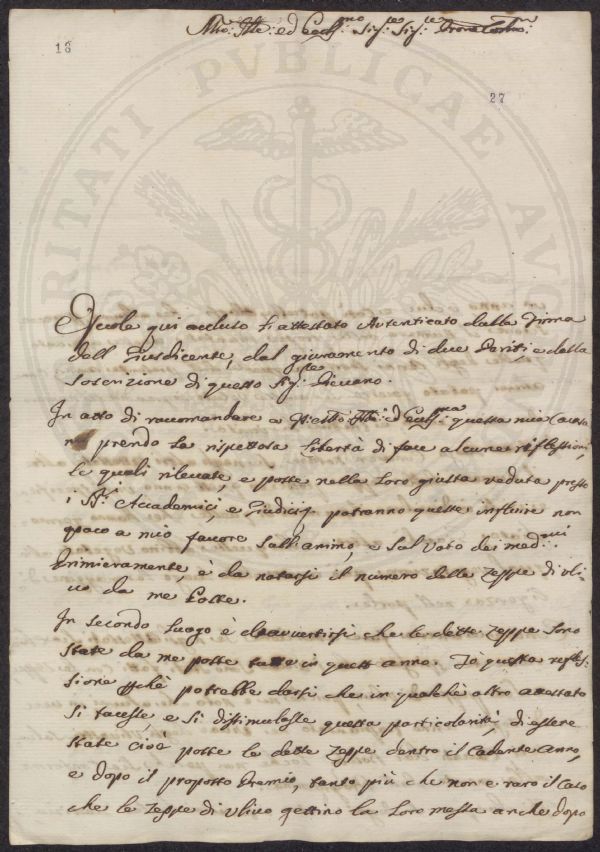 Mto. Ille. ed Eccmo. Sigre. Sigre.
18
27
RITATI PUBLICAE AUG
Eccole qui accluso l'attestato Autenticato dalla Firma
dell Giusdicente, dal giuramento di due Periti, e dalla
soscrizione di questo Sigre. Pievano.
In atto di raccomandare a V. Ille. ed Eccma. questa mia Causa
mi prendo la rispettosa libertà di fare alcune riflessioni,
le quali rilevate, e poste nella loro giusta veduta presso
i SS.ri Accademici, e Giudici, potranno queste influire non
poco a mio favore sull'animo, e sul Voto dei medmi.
Primieramente, è da notarsi il numero delle zeppe di uli-
vo da me poste.
In secondo luogo è da avvertirsi che le dette zeppe sono
state da me poste tutte in quest anno. Fo questa rifles-
sione pchè potrebbe darsi che in qualche altro attestato
si tacesse, e si dissimulasse questa particolarità, di essere
state cioè poste le dette zeppe dentro il cadente anno,
e dopo il proposto Premio, tanto più che non è raro il caso
che le zeppe di ulivo gettino la loro messa anche dopo